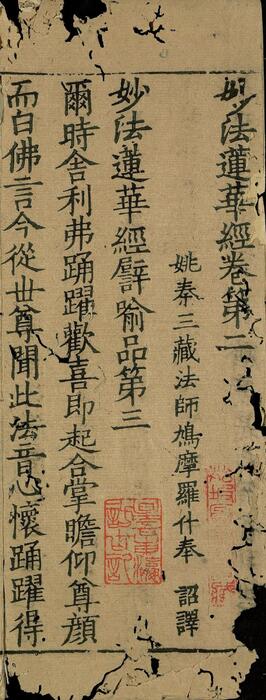 妙法蓮華經卷第二
姚秦三藏法師鳩摩羅什奉 詔譯
妙法蓮華經譬喻品第三
爾時舍利弗踊躍歡喜即起合掌瞻仰尊顏
而白佛言今從世尊聞此法音心懷踊躍得